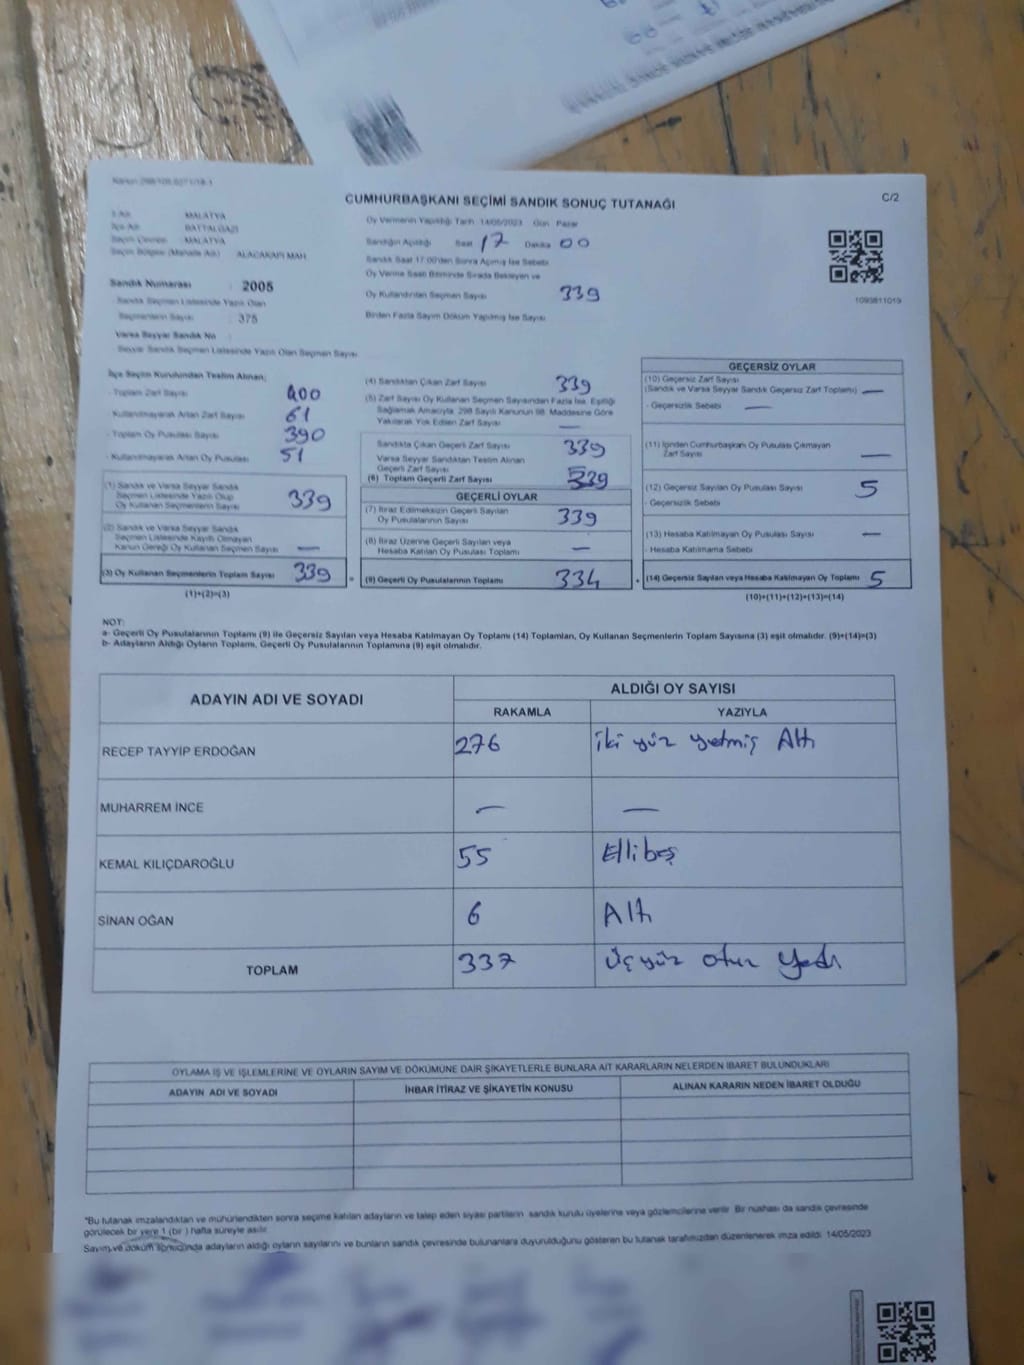 CUMHURBAŞKANI SEÇİMİ SANDIK SONUÇ TUTANAĞI
C/2
İl Adı MALATYA
İlçe Adı BATTALGAZİ
Seçim Çevresi MALATYA
Seçim Bölgesi (Mahalle Adı) ALACAKAPI MAH
Sandık Numarası 2005
Sandık Seçmen Listesinde Yazılı Olan
Seçmenlerin Sayısı 375
Varsa Seyyar Sandık No
Seyyar Sandık Seçmen Listesinde Yazılı Olan Seçmen Sayısı
Oy Vermenin Yapıldığı Tarih 14/05/2023 Gün Pazar
Sandığın Açıldığı Saat 17 Dakika 00
Sandık Saat 17.00'den Sonra Açılmış İse Sebebi
Oy Verme Saati Bitiminde Sırada Bekleyen ve
Oy Kullandırılan Seçmen Sayısı 339
Birden Fazla Sayım Döküm Yapılmış İse Sayısı
1093811019
İlçe Seçim Kurulundan Teslim Alınan;
- Toplam Zarf Sayısı 400
- Kullanılmayarak Artan Zarf Sayısı 61
- Toplam Oy Pusulası Sayısı 390
- Kullanılmayarak Artan Oy Pusulası 51
(1) Sandık ve Varsa Seyyar Sandık
Seçmen Listesinde Yazılı Olup
Oy Kullanan Seçmenlerin Sayısı 339
(2) Sandık ve Varsa Seyyar Sandık
Seçmen Listesinde Kayıtlı Olmayan
Kanun Gereği Oy Kullanan Seçmen Sayısı —
(3) Oy Kullanan Seçmenlerin Toplam Sayısı 339
(1)+(2)=(3)
(4) Sandıktan Çıkan Zarf Sayısı 339
(5) Zarf Sayısı Oy Kullanan Seçmen Sayısından Fazla İse, Eşitliği
Sağlamak Amacıyla, 298 Sayılı Kanunun 98. Maddesine Göre
Yakılarak Yok Edilen Zarf Sayısı —
Sandıkta Çıkan Geçerli Zarf Sayısı 339
Varsa Seyyar Sandıktan Teslim Alınan
Geçerli Zarf Sayısı
(6) Toplam Geçerli Zarf Sayısı 339
GEÇERLİ OYLAR
(7) İtiraz Edilmeksizin Geçerli Sayılan
Oy Pusulalarının Sayısı 339
(8) İtiraz Üzerine Geçerli Sayılan veya
Hesaba Katılan Oy Pusulası Toplamı —
= (9) Geçerli Oy Pusulalarının Toplamı 334
GEÇERSİZ OYLAR
(10) Geçersiz Zarf Sayısı
(Sandık ve Varsa Seyyar Sandık Geçersiz Zarf Toplamı) —
- Geçersizlik Sebebi —
(11) İçinden Cumhurbaşkanı Oy Pusulası Çıkmayan
Zarf Sayısı —
(12) Geçersiz Sayılan Oy Pusulası Sayısı 5
- Geçersizlik Sebebi
(13) Hesaba Katılmayan Oy Pusulası Sayısı —
- Hesaba Katılmama Sebebi
+ (14) Geçersiz Sayılan veya Hesaba Katılmayan Oy Toplamı 5
(10)+(11)+(12)+(13)=(14)
NOT:
a- Geçerli Oy Pusulalarının Toplamı (9) ile Geçersiz Sayılan veya Hesaba Katılmayan Oy Toplamı (14) Toplamları, Oy Kullanan Seçmenlerin Toplam Sayısına (3) eşit olmalıdır. (9)+(14)=(3)
b- Adayların Aldığı Oyların Toplamı, Geçerli Oy Pusulalarının Toplamına (9) eşit olmalıdır.
ADAYIN ADI VE SOYADI ALDIĞI OY SAYISI
RAKAMLA YAZIYLA
RECEP TAYYİP ERDOĞAN 276 iki yüz yetmiş Altı
MUHARREM İNCE — —
KEMAL KILIÇDAROĞLU 55 Ellibeş
SİNAN OĞAN 6 Altı
TOPLAM 337 Üçyüz otuz Yedi
OYLAMA İŞ VE İŞLEMLERİNE VE OYLARIN SAYIM VE DÖKÜMÜNE DAİR ŞİKAYETLERLE BUNLARA AİT KARARLARIN NELERDEN İBARET BULUNDUKLARI
ADAYIN ADI VE SOYADI İHBAR İTİRAZ VE ŞİKAYETİN KONUSU ALINAN KARARIN NEDEN İBARET OLDUĞU
*Bu tutanak imzalandıktan ve mühürlendikten sonra seçime katılan adayların ve talep eden siyasi partilerin sandık kurulu üyelerine veya gözlemcilerine verilir. Bir nüshası da sandık çevresinde
görülecek bir yere 1 (bir) hafta süreyle asılır.
Sayım ve döküm sonucunda adayların aldığı oyların sayılarını ve bunların sandık çevresinde bulunanlara duyurulduğunu gösteren bu tutanak tarafımızdan düzenlenerek imza edildi. 14/05/2023